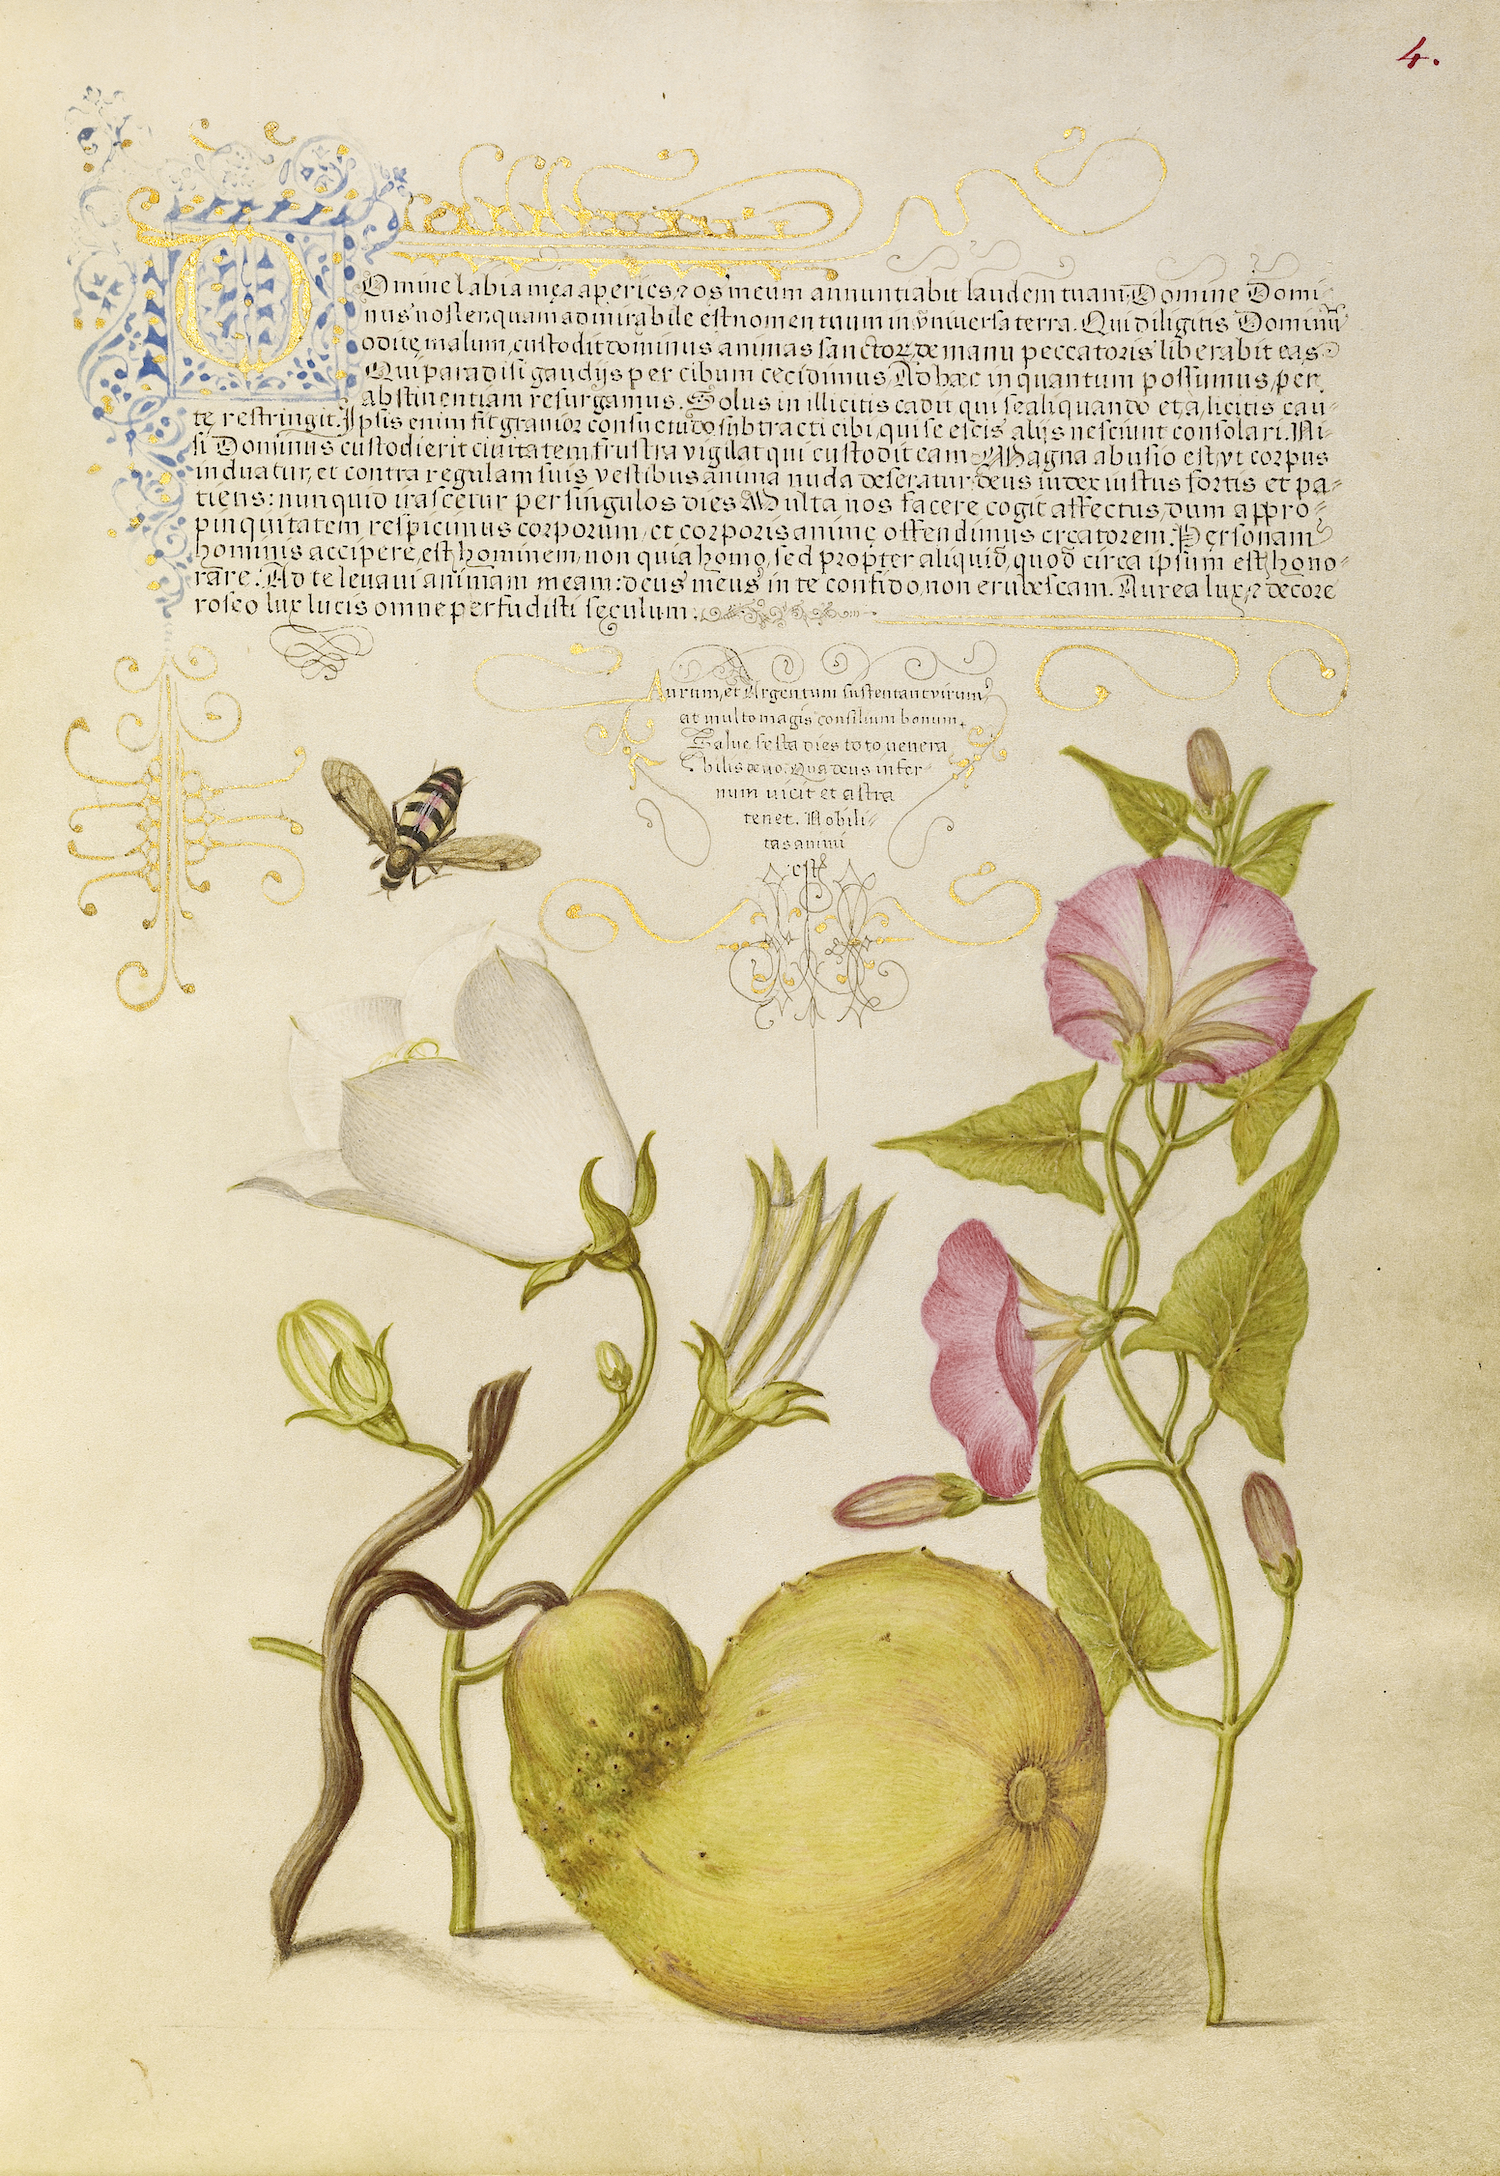 4.
Domine labia mea aperies, et os meum annuntiabit laudem tuam. Domine Domi-
nus noster, quam admirabile est nomen tuum in universa terra. Qui diligitis Dominū
odite malum, custodit dominus animas sanctorum, de manu peccatoris liberabit eas.
Qui paradisi gaudijs per cibum cecidimus, Ad hæc in quantum possumus, per
abstinentiam resurgamus. Solus in illicitis cadit qui se aliquando et a licitis cau-
te restringit. Ipsis enim fit gravior consuetudo subtracti cibi, qui se escis alijs nesciunt consolari. Ni-
si Dominus custodierit civitatem, frustra vigilat qui custodit eam. Magna abusio est, vt corpus
induatur, et contra regulam suis vestibus anima nuda deseratur. deus iudex iustus fortis et pa-
tiens: nunquid irascetur per singulos dies. Multa nos facere cogit affectus, dum appro-
pinquitatem respicimus corporum, et corporis animę offendimus creatorem. Personam
hominis accipere, est hominem, non quia homo, sed propter aliquid, quod circa ipsum est, hono-
rare. Ad te levavi animam meam: deus meus in te confido, non erubescam. Aurea lux, et decore
roseo lux lucis omne perfudisti seculum.
Aurum, et Argentum sustentant virum,
at multo magis consilium bonum.
Salve festa dies toto venera
bilis aevo. Qua deus infer-
num vicit et astra
tenet. Nobili-
tas animi
est